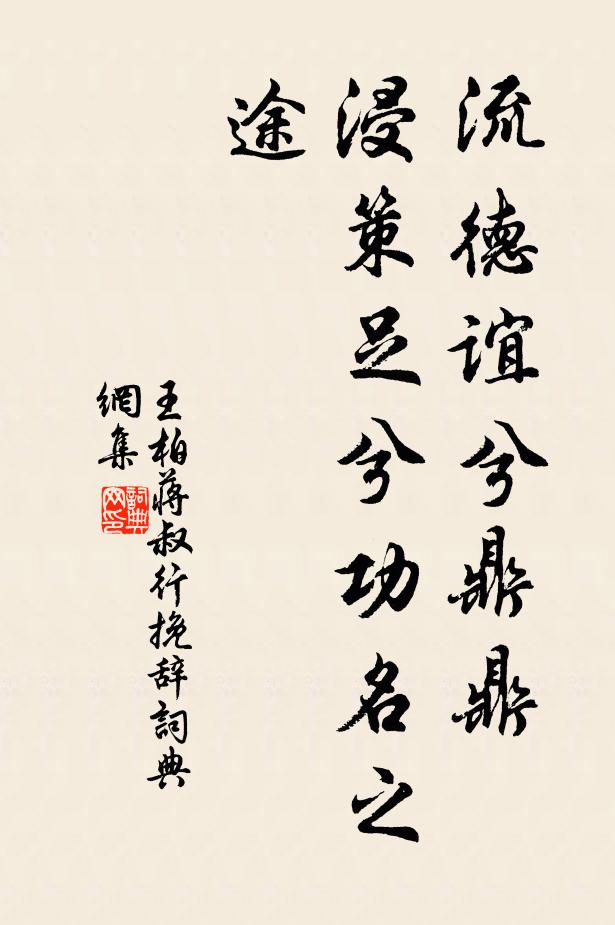 流德谊兮鼎鼎
浸策足兮功名之
途
王柏蒋叔行挽辞詞典
網集
詞典网印